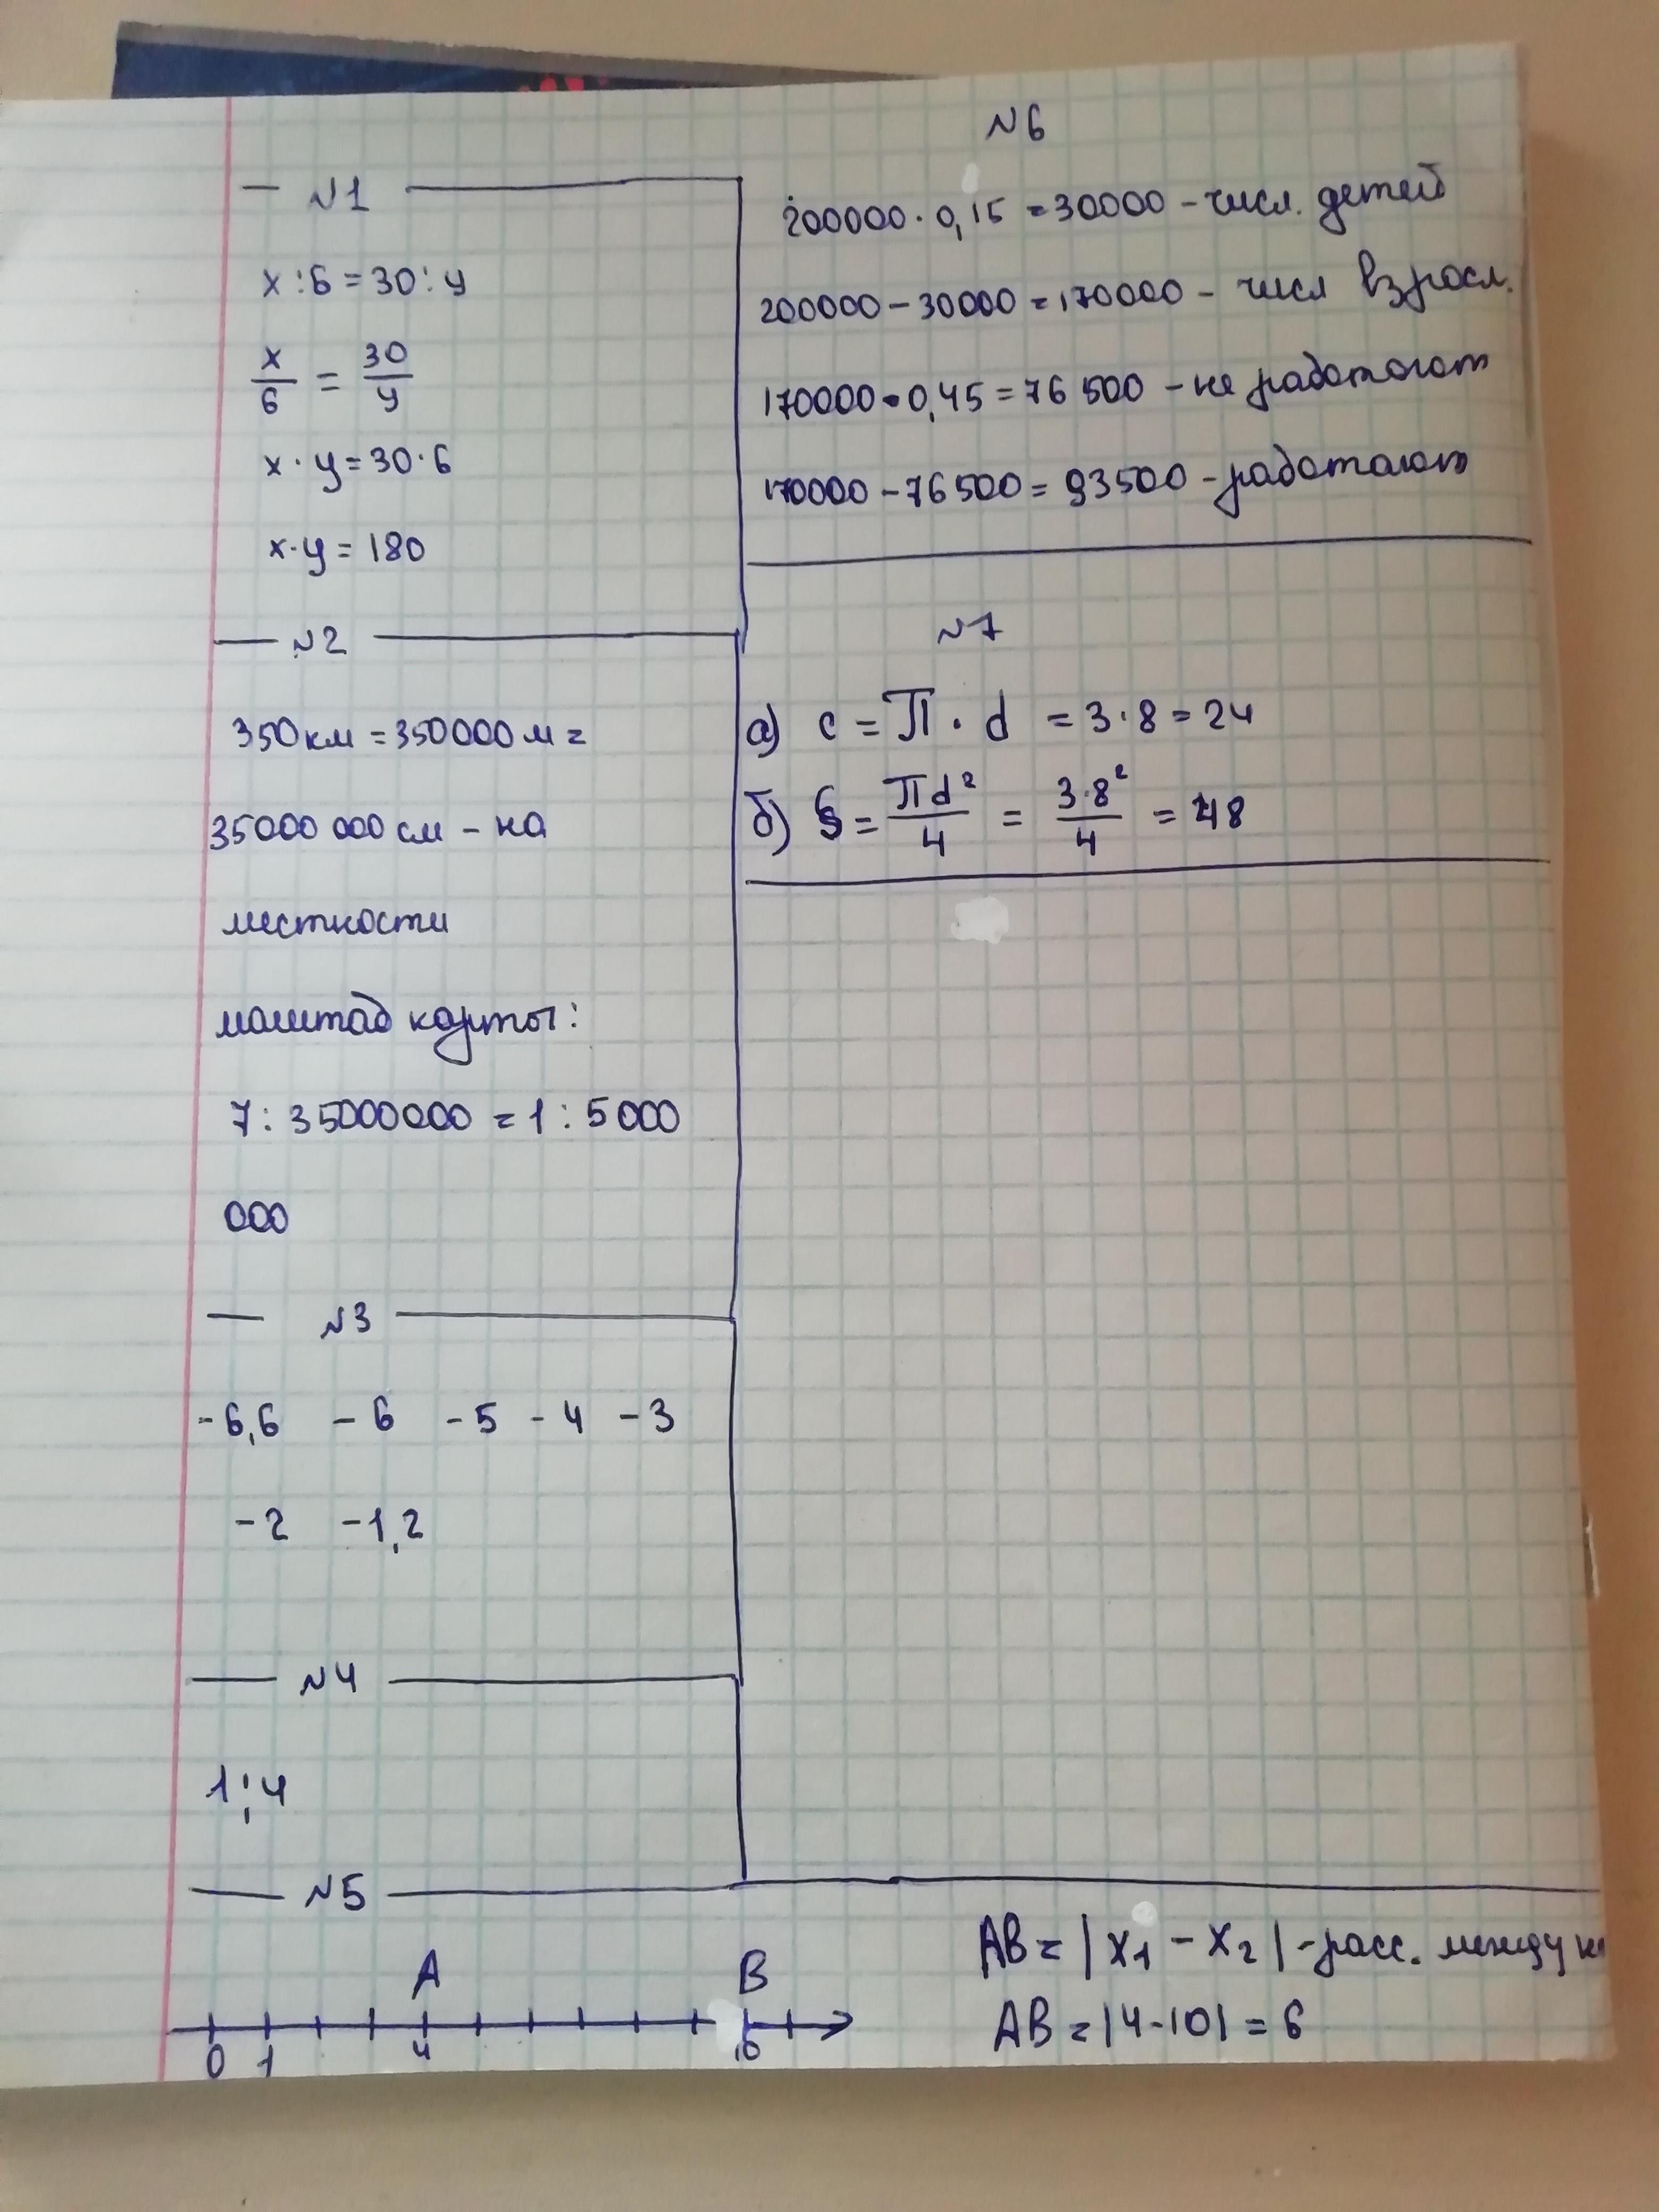 N1
x : 6 = 30 : y
x/6 = 30/y
x · y = 30 · 6
x · y = 180
N2
350 км = 350000 м =
35000 000 см - на
местности
маштаб карты:
7 : 35000000 = 1 : 5000
000
N3
-6,6 -6 -5 -4 -3
-2 -1,2
N4
1;4
N5
A B
0 1 4
AB = |x₁ - x₂| - расс. между
AB = |4-10| = 6
N6
200000 · 0,15 = 30000 - числ. детей
200000 - 30000 = 170000 - числ взросл.
170000 · 0,45 = 76 500 - не работают
170000 - 76 500 = 93500 - работают
N7
а) c = П · d = 3 · 8 = 24
б) S = Пd²/4 = 3·8²/4 = 48